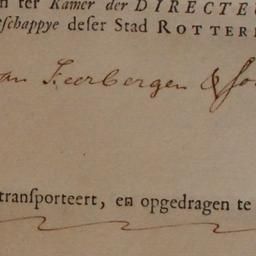 n ter Kamer der DIRECTE
tschappye deser Stad ROTTER
an Feerbergen & So
transporteert, en opgedragen te